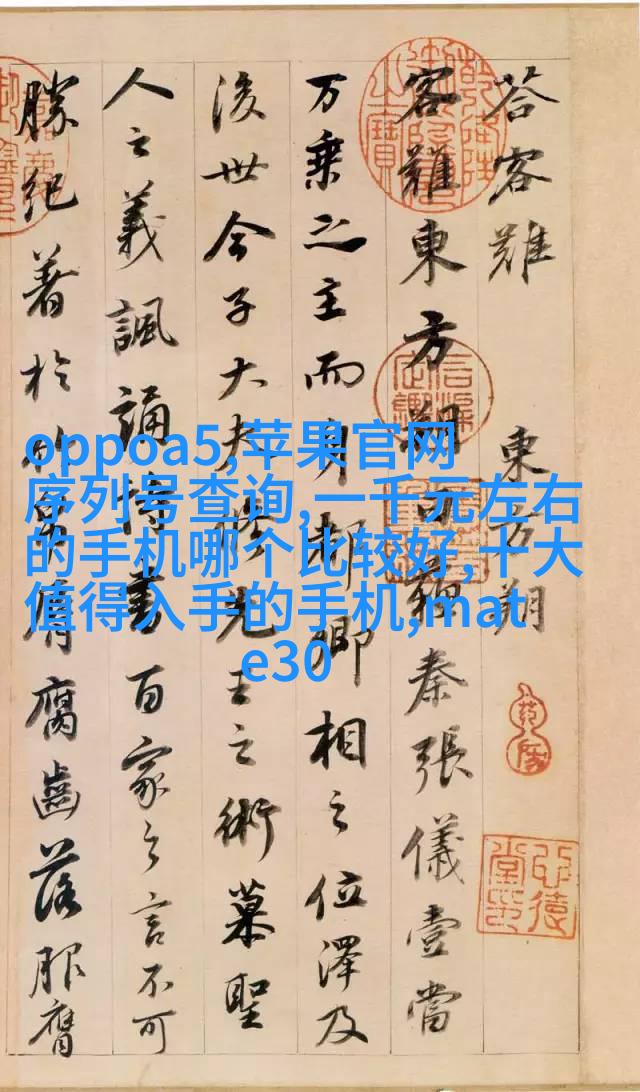 荅客難 東方朔
客難東方朔曰蘇秦張儀壹當
万乘之主而身都卿相之位澤及
後世今子大夫脩先王之術慕聖
人之義諷誦詩書百家之言不可
勝紀著於竹帛脣腐齒落服膺
oppoa5,苹果官网
序列号查询,一千元左右
的手机哪个比较好,十大
值得入手的手机,mat
e30